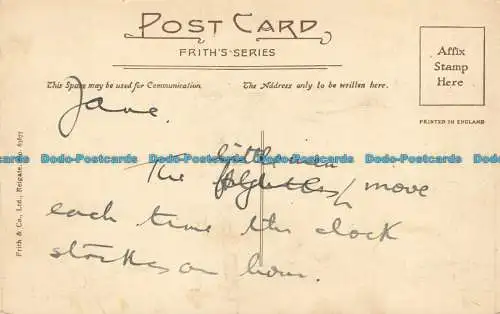 POST CARD
FRITH'S SERIES
This Space may be used for Communication.
The Address only to be written here.
Affix
Stamp
Here
PRINTED IN ENGLAND
Frith & Co., Ltd., Reigate. No.
Jane.
Dodo-Postcards Dodo-Postcards Dodo-Postcards Dodo-Postcards
little men
The move
each time the clock
strikes an hour.
Dodo-Postcards Dodo-Postcards Dodo-Postcards Dodo-Postcards